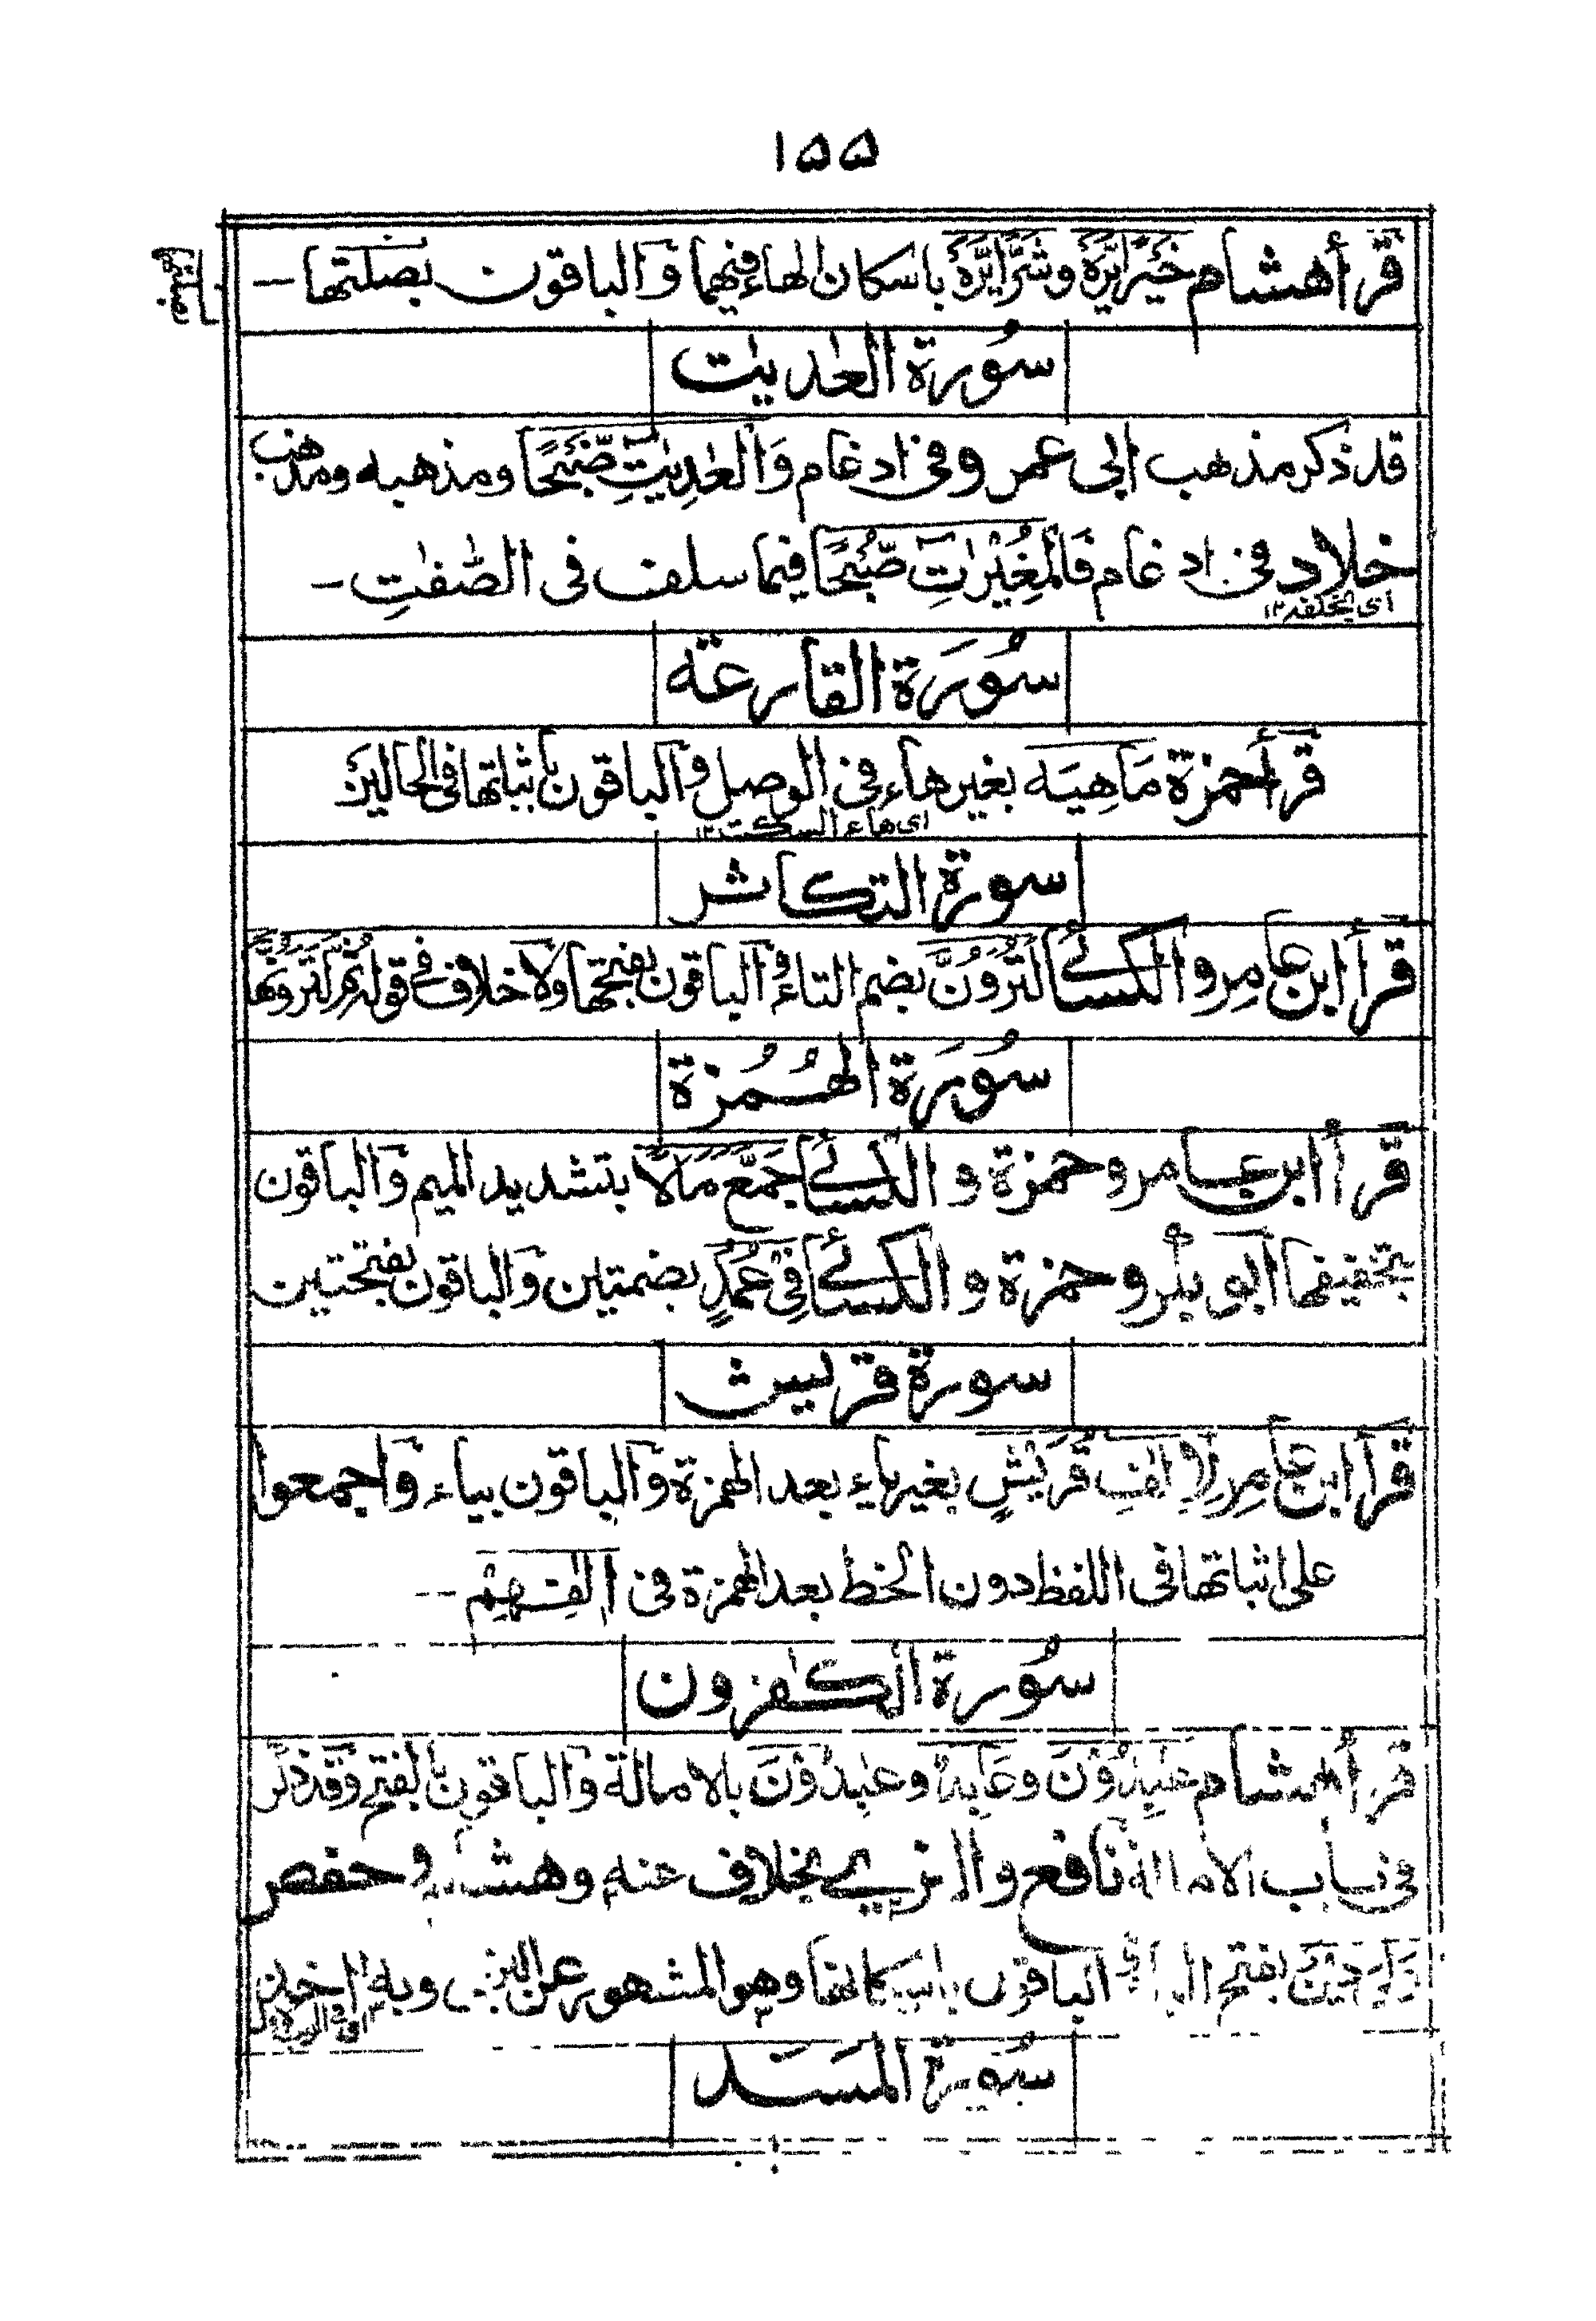 ١٥٥
قرأ هشام خَيْرًا يَّرَهْ و شَرًّا يَّرَهْ باسكان الهاء فيهما والباقون بصلتها ــ
سُورة العٰديٰت
قد ذكر مذهب ابى عمرو فى ادغام وَالْعٰدِيٰتِ ضَّبْحًا ومذهبه ومذهب
خلاد فى ادغام فَالْمُغِيْرٰتِ صُّبْحًا فيما سلف فى الصّٰفٰتِ ــ
اى بخلفه ١٢
سُورَة القارعة
قرأ حمزة مَاهِيَه بغير هاء فى الوصل والباقون باثباتها فى الحالين
اى هاء السكت ١٢
سورة التكاثر
قرأ ابن عامر والكسائى لَتُرَوُنَّ بضم التاء والباقون بفتحها ولا خلاف فى قوله ثُمَّ لَتَرَوُنَّهَا
سُورَة الهُمُزة
قرأ ابن عامر وحمزة والكسائى جَمَّعَ مَالًا بتشديد الميم والباقون
بتخفيفها ابو بكر وحمزة والكسائى فِىْ عُمُدٍ بضمتين والباقون بفتحتين
سورة قريش
قرأ ابن عامر لِاِلٰفِ قُرَيْشٍ بغير ياء بعد الهمزة والباقون بياء واجمعوا
على اثباتها فى اللفظ دون الخط بعد الهمزة فى اٖلٰفِهِمْ ــ
سُورة الكٰفرون
قرأ هشام عٰبِدُوْنَ و عَابِدٌ و عٰبِدُوْنَ بالامالة والباقون بالفتح وقد ذكر
فى باب الامالة نافع والبزى بخلاف عنه وهشام وحفص
وَلِيَ دِيْنِ بفتح الياء والباقون باسكانها وهو المشهور عن البزى وبه اٰخذ
سُورة المَسَد